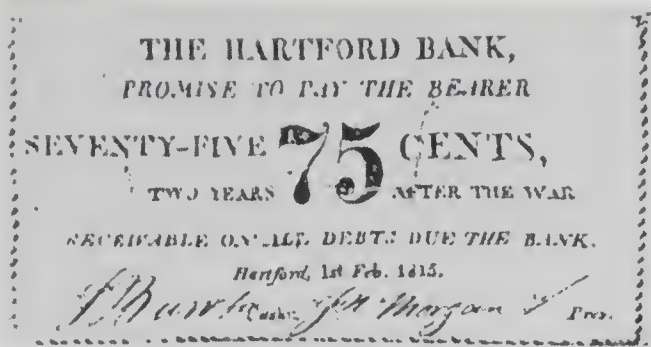 THE HARTFORD BANK,
PROMISE TO PAY THE BEARER
SEVENTY-FIVE 75 CENTS,
TWO YEARS AFTER THE WAR
RECEIVABLE ON ALL DEBTS DUE THE BANK.
Hartford, 1st Feb. 1815.
Cashr. Morgan Pres.